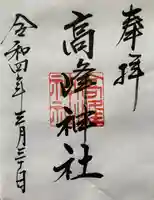 奉拝
高峰神社
令和四年三月三十日